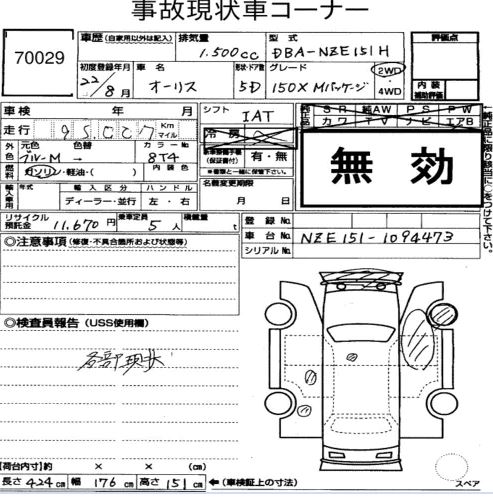 事故現状車コーナー
70029
車歴 (自家用以外は記入) 排気量 型式 評価点
1.500cc DBA-NZE151H
初度登録年月 車名 形状・ドア数 グレード 2WD
22/8月 オーリス 5D 150X Mパッケージ 4WD
内装補助評価
車検 年 月 シフト IAT
純正品 SR 純AW PS PW
カワ TV ナビ エアB
走行 95,007 Km マイル 冷房
外色 元色 色替 カラーNo.
ブルーM → 8T4
(保証書付) 有・無
無効
燃料 ガソリン・軽油・( ) 内装色
名義変更期限
月 日
輸入車用 年式 輸入区分 ハンドル
ディーラー・並行 左・右
←純正品に限り該当に○をつけて下さい。
リサイクル預託金 11,670円 乗車定員 5人 積載量 t
登録No.
車台No. NZE151-1094473
シリアルNo.
◎注意事項 (修復・不具合箇所および状態等)
◎検査員報告 (USS使用欄)
各部現状
【荷台内寸】約 × × (cm)
長さ 424cm 幅 176cm 高さ 151cm ←(車検証上の寸法)
スペア